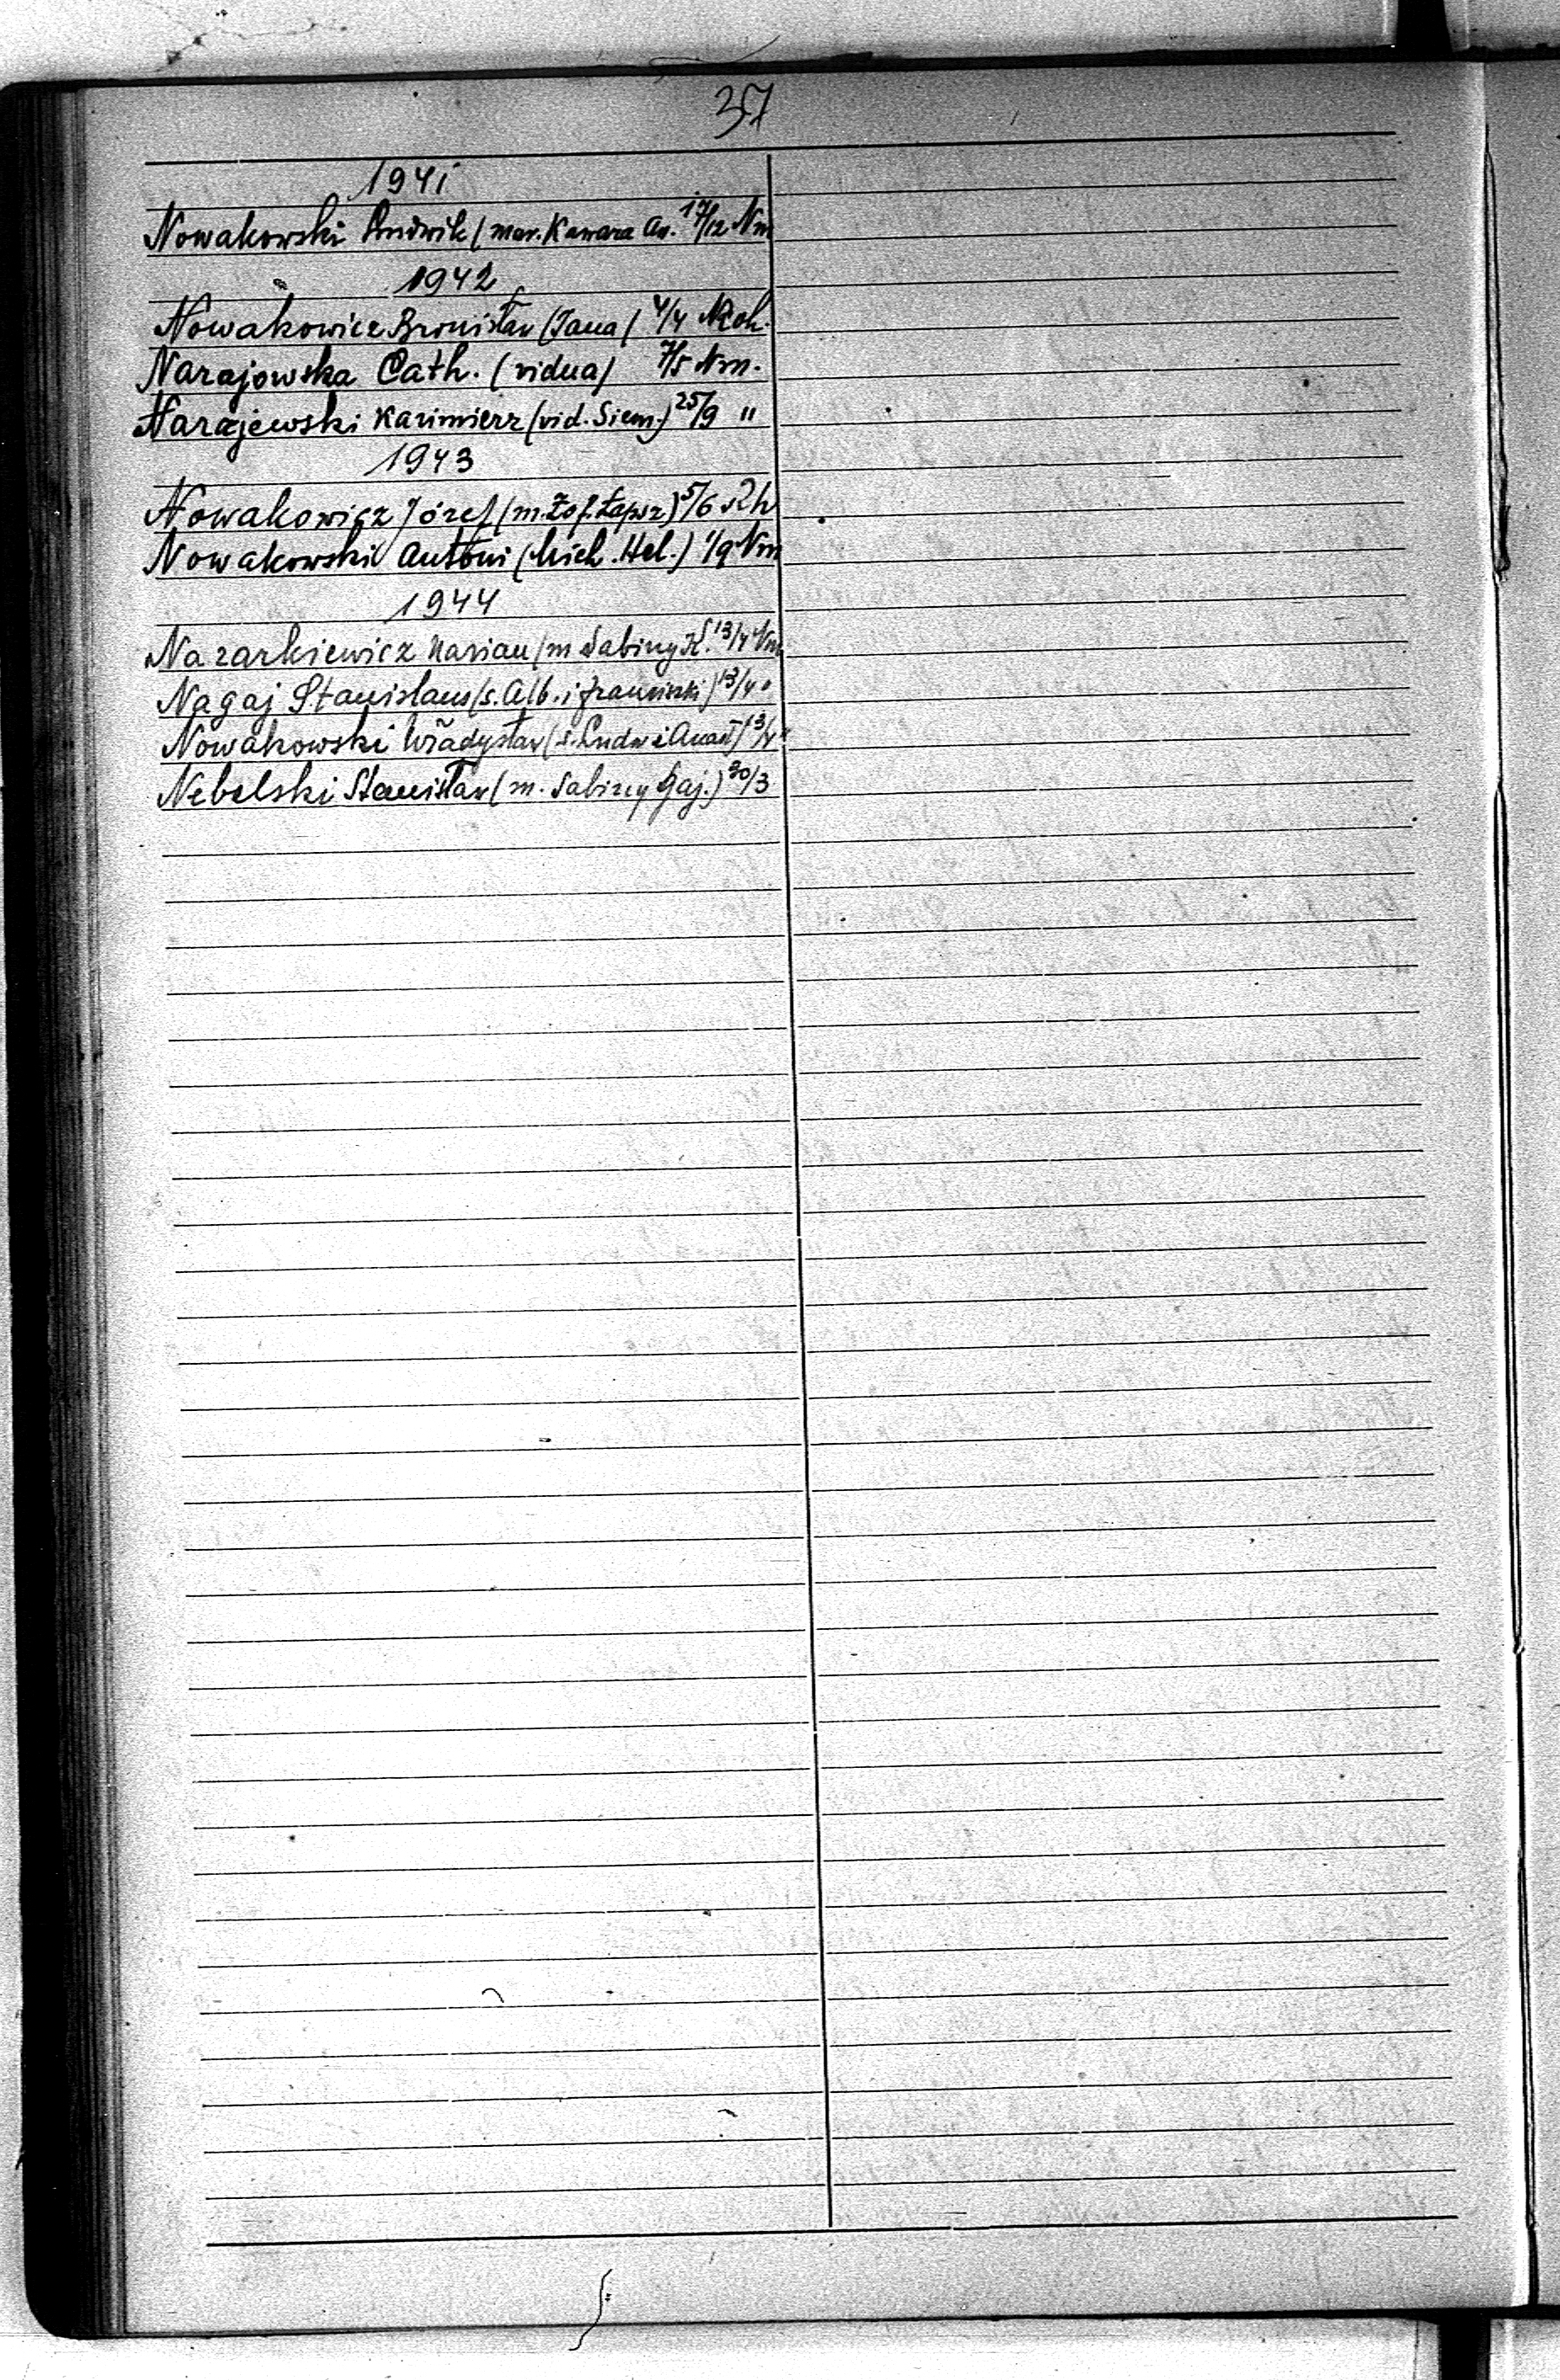 37
1941
Nowakowski Ludwik (mar. Kawara An. 17/12 Nm
1942
Nowakowicz Bronisław (Jana) 4/4 Roh.
Narajowska Cath. (vidua) 7/5 Nm.
Narajewski Kazimierz (vid. Siem.) 25/9 "
1943
Nowakowicz Józef (m. Zof. Łapsz) 5/6 Rh
Nowakowski Antoni (Mich. Hel.) 1/9 Nm
1944
Nazarkiewicz Marian (m Sabiny K. 13/4 Nm
Nagaj Stanislaus (s. Alb. i Franciszki) 13/4 "
Nowakowski Władysław (s. Ludw i Anast) 13/4 "
Nebelski Stanisław (m. Sabiny Gaj.) 30/3